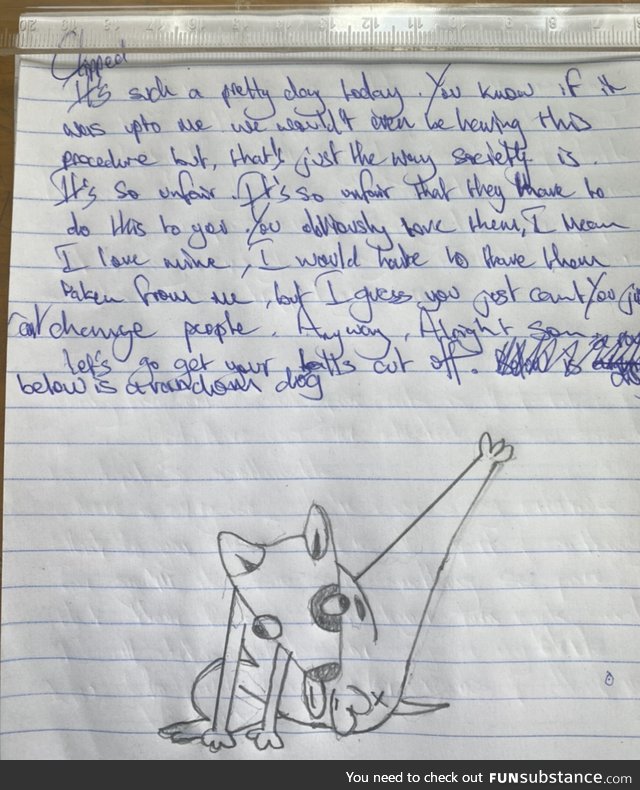 Clipped
It's such a pretty day today. You know if it
was upto me we wouldn't even be having this
procedure but, that's just the way society is.
It's so unfair. It's so unfair that they have to
do this to you. You obliously love them, I mean
I love mine, I would hate to have them
taken from me, but I guess you just can't You ju
cant change people. Anyway, Alright son
let's go get your balls cut off.
below is a random dog
You need to check out FUNsubstance.com